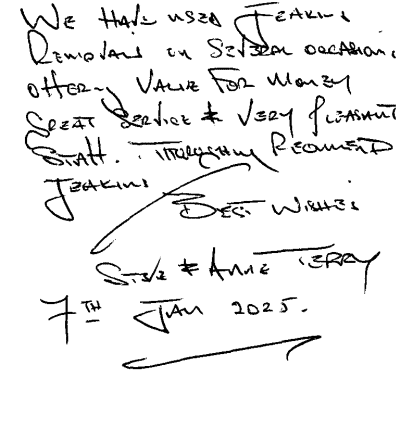 We Have used Jeakins
Removals on Several occasions
offering Value For Money
Great Service & Very Pleasant
Staff. Thoroughly Recommend
Jeakins
Best Wishes
Steve & Anne Terry
7th Jan 2025.